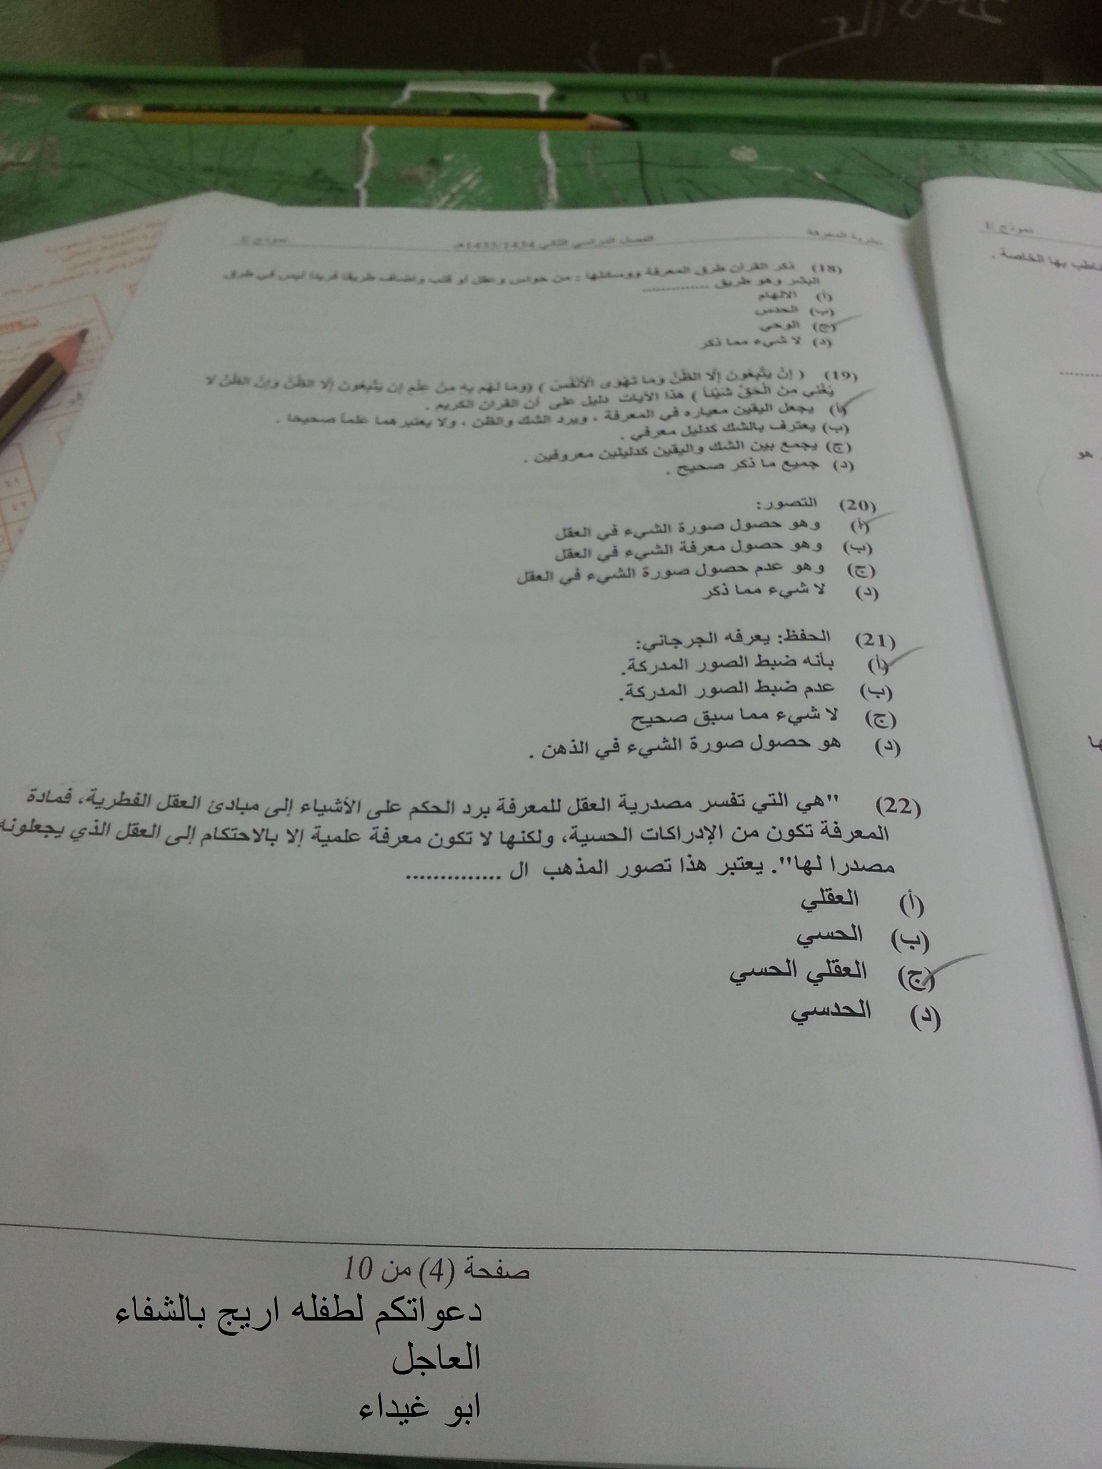 نظرية المعرفة الفصل الدراسي الثاني 1433/1434هـ نموذج E
(18) ذكر القرآن طرق المعرفة ووسائلها : من حواس وعقل او قلب وأضاف طريقا فريدا ليس في طرق
البشر وهو طريق ..............
(أ) الالهام
(ب) الحدس
(ج) الوحي
(د) لا شيء مما ذكر
(19) ( إِنْ يَتَّبِعُونَ إِلَّا الظَّنَّ وَمَا تَهْوَى الْأَنْفُسُ ) (وما لهم به من علم إن يتبعون إلا الظن وإن الظن لا
يُغْنِي مِنَ الْحَقِّ شَيْئاً ) هذا الآيات دليل على أن القرآن الكريم .
(أ) يجعل اليقين معياره في المعرفة ، ويرد الشك والظن ، ولا يعتبرهما علماً صحيحا .
(ب) يعترف بالشك كدليل معرفي .
(ج) يجمع بين الشك واليقين كدليلين معروفين .
(د) جميع ما ذكر صحيح .
(20) التصور:
(أ) وهو حصول صورة الشيء في العقل
(ب) وهو حصول معرفة الشيء في العقل
(ج) وهو عدم حصول صورة الشيء في العقل
(د) لا شيء مما ذكر
(21) الحفظ: يعرفه الجرجاني:
(أ) بأنه ضبط الصور المدركة.
(ب) عدم ضبط الصور المدركة.
(ج) لا شيء مما سبق صحيح
(د) هو حصول صورة الشيء في الذهن .
(22) "هي التي تفسر مصدرية العقل للمعرفة برد الحكم على الأشياء إلى مبادئ العقل الفطرية، فمادة
المعرفة تكون من الإدراكات الحسية، ولكنها لا تكون معرفة علمية إلا بالاحتكام إلى العقل الذي يجعلونه
مصدرا لها". يعتبر هذا تصور المذهب ال ..............
(أ) العقلي
(ب) الحسي
(ج) العقلي الحسي
(د) الحدسي
صفحة (4) من 10
دعواتكم لطفله اريج بالشفاء
العاجل
ابو غيداء
نموذج E
بها الخاصة .
هو
ها